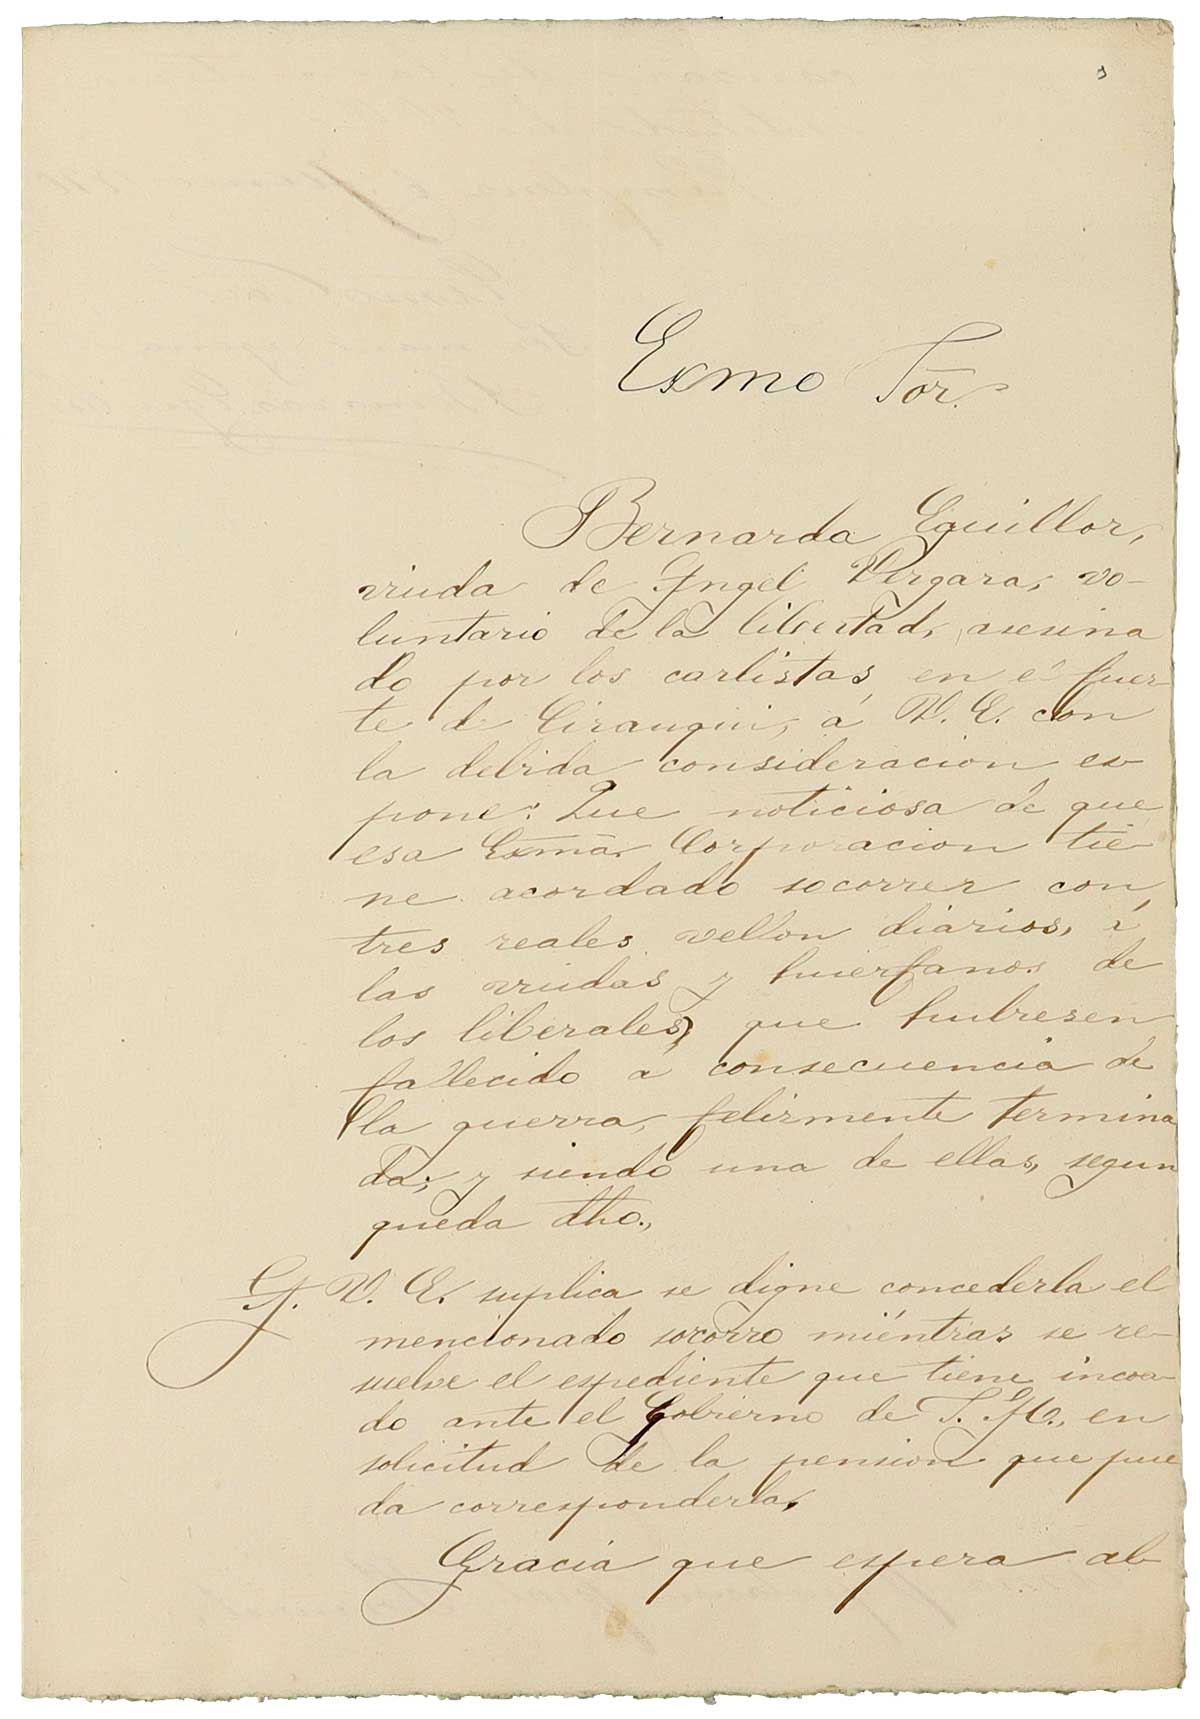 Exmo Sor.
Bernarda Eguillor,
viuda de Angel Vergara, vo-
luntario de la libertad, asesina
do por los carlistas en el fuer-
te de Cirauqui, á V. E. con
la debida consideracion es-
pone: Que noticiosa de que
esa Exma. Corporacion tie-
ne acordado socorrer con
tres reales vellon diarios, á
las viudas y huerfanos de
los liberales, que hubiesen
fallecido á consecuencia de
la guerra, felizmente termina
da; y siendo una de ellas, segun
queda dho.,
A. V. E. suplica se digne concederla el
mencionado socorro miéntras se re-
suelve el espediente que tiene incoa-
do ante el Gobierno de S. M., en
solicitud de la pension que pue
da corresponderla.
Gracia que espera al-